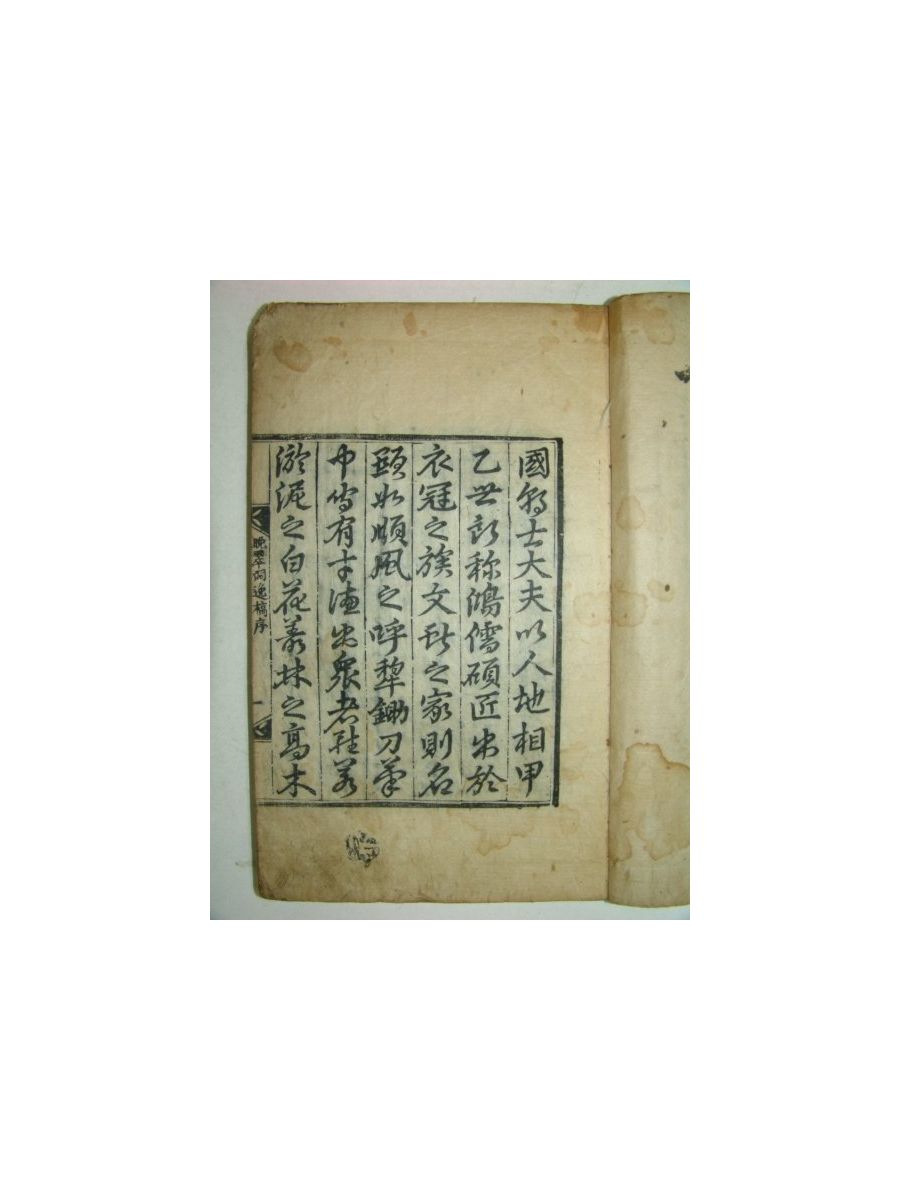 國朝士大夫以人地相甲
乙世所称鴻儒碩匠出於
衣冠之族文獻之家則名
顯如順風之呼犁鋤刀筆
中當有才德出衆者
淤泥之白花叢林之高木
晩翠逸稿序